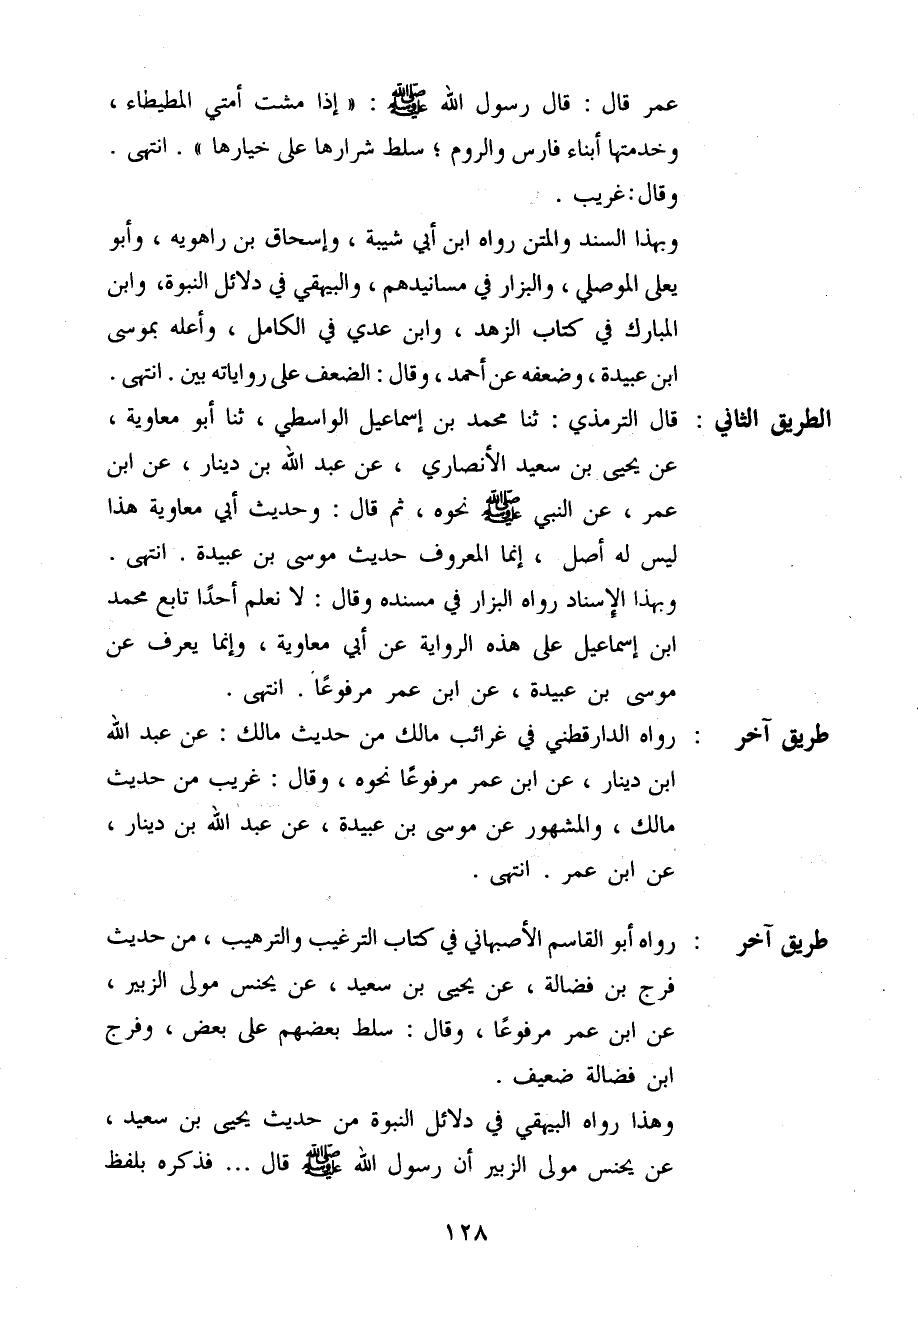 عمر قال : قال رسول الله ﷺ : « إذا مشت أمتي المطيطاء ،
وخدمتها أبناء فارس والروم ؛ سلط شرارها على خيارها » . انتهى .
وقال : غريب .
وبهذا السند والمتن رواه ابن أبي شيبة ، وإسحاق بن راهويه ، وأبو
يعلى الموصلي ، والبزار في مسانيدهم ، والبيهقي في دلائل النبوة، وابن
المبارك في كتاب الزهد ، وابن عدي في الكامل ، وأعله بموسى
ابن عبيدة ، وضعفه عن أحمد ، وقال : الضعف على رواياته بين . انتهى .
الطريق الثاني : قال الترمذي : ثنا محمد بن إسماعيل الواسطي ، ثنا أبو معاوية ،
عن يحيى بن سعيد الأنصاري ، عن عبد الله بن دينار ، عن ابن
عمر ، عن النبي ﷺ نحوه ، ثم قال : وحديث أبي معاوية هذا
ليس له أصل ، إنما المعروف حديث موسى بن عبيدة . انتهى .
وبهذا الإسناد رواه البزار في مسنده وقال : لا نعلم أحدًا تابع محمد
ابن إسماعيل على هذه الرواية عن أبي معاوية ، وإنما يعرف عن
موسى بن عبيدة ، عن ابن عمر مرفوعًا . انتهى .
طريق آخر : رواه الدارقطني في غرائب مالك من حديث مالك : عن عبد الله
ابن دينار ، عن ابن عمر مرفوعًا نحوه ، وقال : غريب من حديث
مالك ، والمشهور عن موسى بن عبيدة ، عن عبد الله بن دينار ،
عن ابن عمر . انتهى .
طريق آخر : رواه أبو القاسم الأصبهاني في كتاب الترغيب والترهيب ، من حديث
فرج بن فضالة ، عن يحيى بن سعيد ، عن يحنس مولى الزبير ،
عن ابن عمر مرفوعًا ، وقال : سلط بعضهم على بعض ، وفرج
ابن فضالة ضعيف .
وهذا رواه البيهقي في دلائل النبوة من حديث يحيى بن سعيد ،
عن يحنس مولى الزبير أن رسول الله ﷺ قال ... فذكره بلفظ
١٢٨